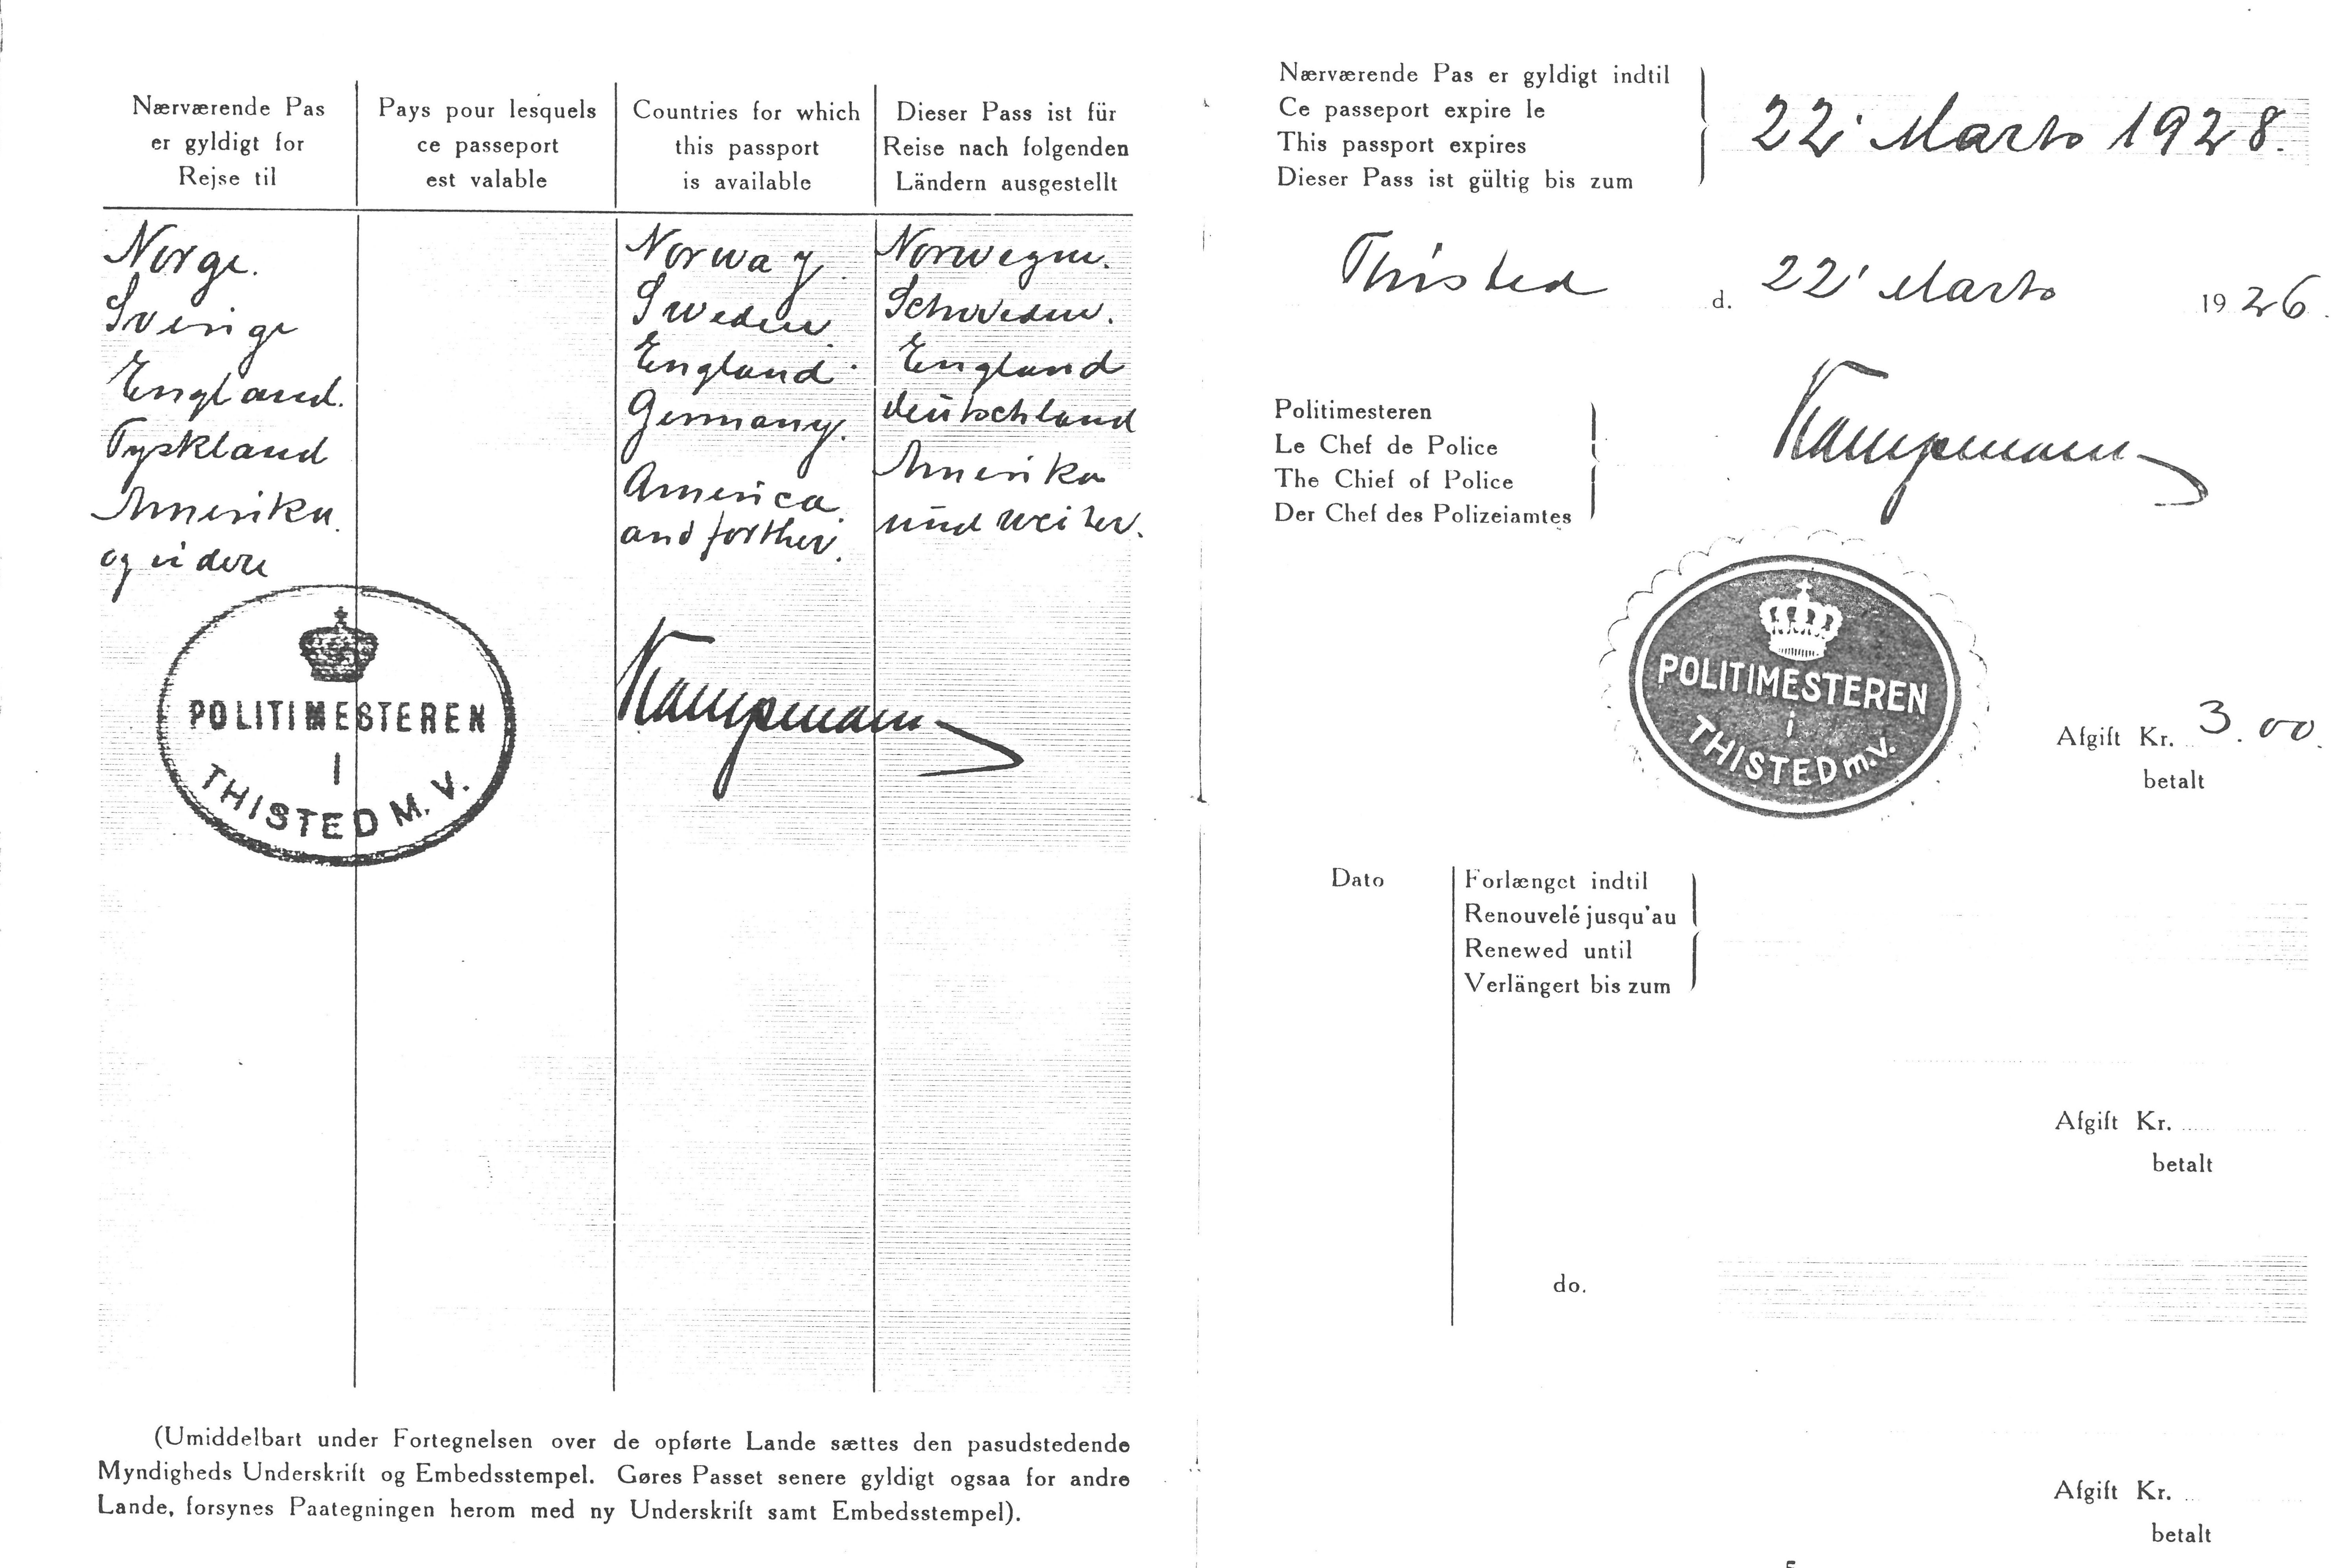 Nærværende Pas
er gyldigt for
Rejse til
Pays pour lesquels
ce passeport
est valable
Countries for which
this passport
is available
Dieser Pass ist für
Reise nach folgenden
Ländern ausgestellt
Norge.
Sverige
England.
Tyskland
Amerika.
og videre
Norway
Sweden
England.
Germany.
America.
and forther.
Norwegen.
Schweden.
England
deutschland
Amerika
und weiter.
POLITIMESTEREN
I
THISTED M. V.
Kampmann
(Umiddelbart under Fortegnelsen over de opførte Lande sættes den pasudstedende
Myndigheds Underskrift og Embedsstempel. Gøres Passet senere gyldigt ogsaa for andre
Lande, forsynes Paategningen herom med ny Underskrift samt Embedsstempel).
Nærværende Pas er gyldigt indtil
Ce passeport expire le
This passport expires
Dieser Pass ist gültig bis zum
22' Marts 1928.
Thisted d. 22' Marts 1926.
Politimesteren
Le Chef de Police
The Chief of Police
Der Chef des Polizeiamtes
Kampmann
POLITIMESTEREN
i
THISTED m.v.
Afgift Kr. 3.00.
betalt
Dato
Forlænget indtil
Renouvelé jusqu'au
Renewed until
Verlängert bis zum
Afgift Kr.
betalt
do.
Afgift Kr.
betalt